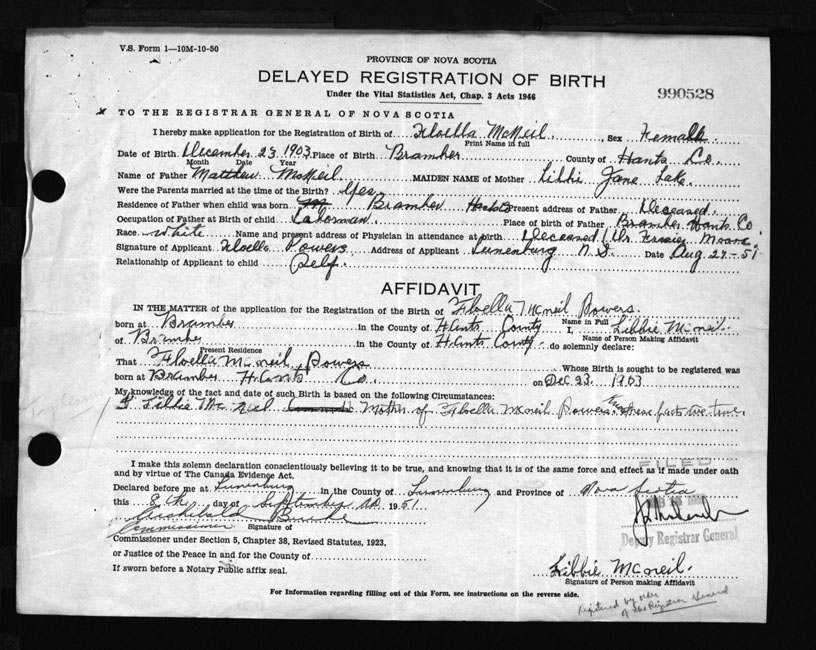 V.S. Form 1—10M-10-50
PROVINCE OF NOVA SCOTIA
DELAYED REGISTRATION OF BIRTH
Under the Vital Statistics Act, Chap. 3 Acts 1946
990528
TO THE REGISTRAR GENERAL OF NOVA SCOTIA
I hereby make application for the Registration of Birth of Floella McNeil, Sex Female
Print Name in full
Date of Birth December 23 1903 Place of Birth Bramber County of Hants Co.
Month Date Year
Name of Father Matthew McNeil MAIDEN NAME of Mother Libbie Jane Lake
Were the Parents married at the time of the Birth? Yes
Residence of Father when child was born Bramber Present address of Father Deceased
Occupation of Father at Birth of child Place of birth of Father Bramber Hants Co
Race White Name and present address of Physician in attendance at birth Deceased
Signature of Applicant Floella Powers Address of Applicant Lunenburg N.S. Date Aug 27-51
Relationship of Applicant to child Self.
AFFIDAVIT
IN THE MATTER of the application for the Registration of the Birth of Floella McNeil Powers
Name in Full
born at Bramber in the County of Hants County I, Libbie McNeil
Name of Person Making Affidavit
of Bramber in the County of Hants County do solemnly declare:
Present Residence
That Floella McNeil Powers Whose Birth is sought to be registered was
born at Bramber Hants Co. on Dec 23. 1903
My knowledge of the fact and date of such Birth is based on the following Circumstances:
I Libbie McNeil Mother of Floella McNeil Powers these facts are true
I make this solemn declaration conscientiously believing it to be true, and knowing that it is of the same force and effect as if made under oath
and by virtue of The Canada Evidence Act.
FILED
Declared before me at Lunenburg in the County of Lunenburg and Province of Nova Scotia
this 8th day of September AD 1951
Archibald
Commissioner Signature of
Deputy Registrar General
Commissioner under Section 5, Chapter 38, Revised Statutes, 1923,
or Justice of the Peace in and for the County of
Libbie McNeil
If sworn before a Notary Public affix seal.
Signature of Person making Affidavit
For Information regarding filling out of this Form, see instructions on the reverse side.
Registered by order
of the Registrar General